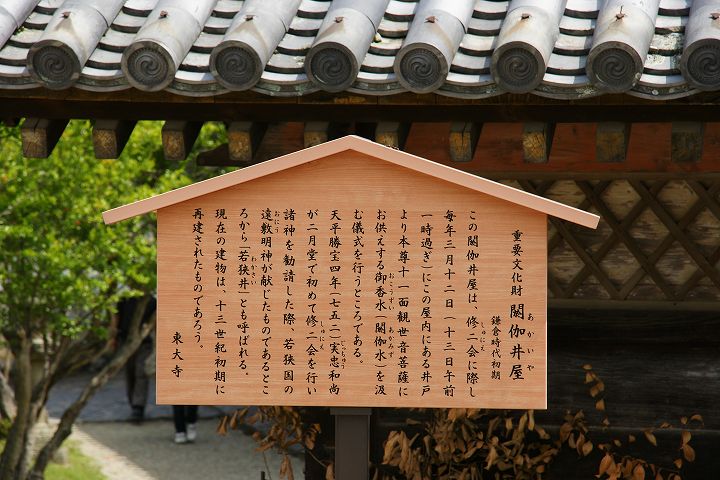 重要文化財 閼伽井屋
あかいや
鎌倉時代初期
この閼伽井屋は、修二会に際し
しゅにえ
毎年三月十二日(十三日午前
一時過ぎ)にこの屋内にある井戸
より本尊十一面観世音菩薩に
お供えする御香水(閼伽水)を汲
おこうずい
あかみず
む儀式を行うところである。
天平勝宝四年(七五二)実忠和尚
じっちゅう
が二月堂で初めて修二会を行い
しゅにえ
諸神を勧請した際、若狭国の
遠敷明神が献じたものであるとこ
おにゅう
ろから「若狭井」とも呼ばれる。
わかさい
現在の建物は、十三世紀初期に
再建されたものであろう。
東大寺